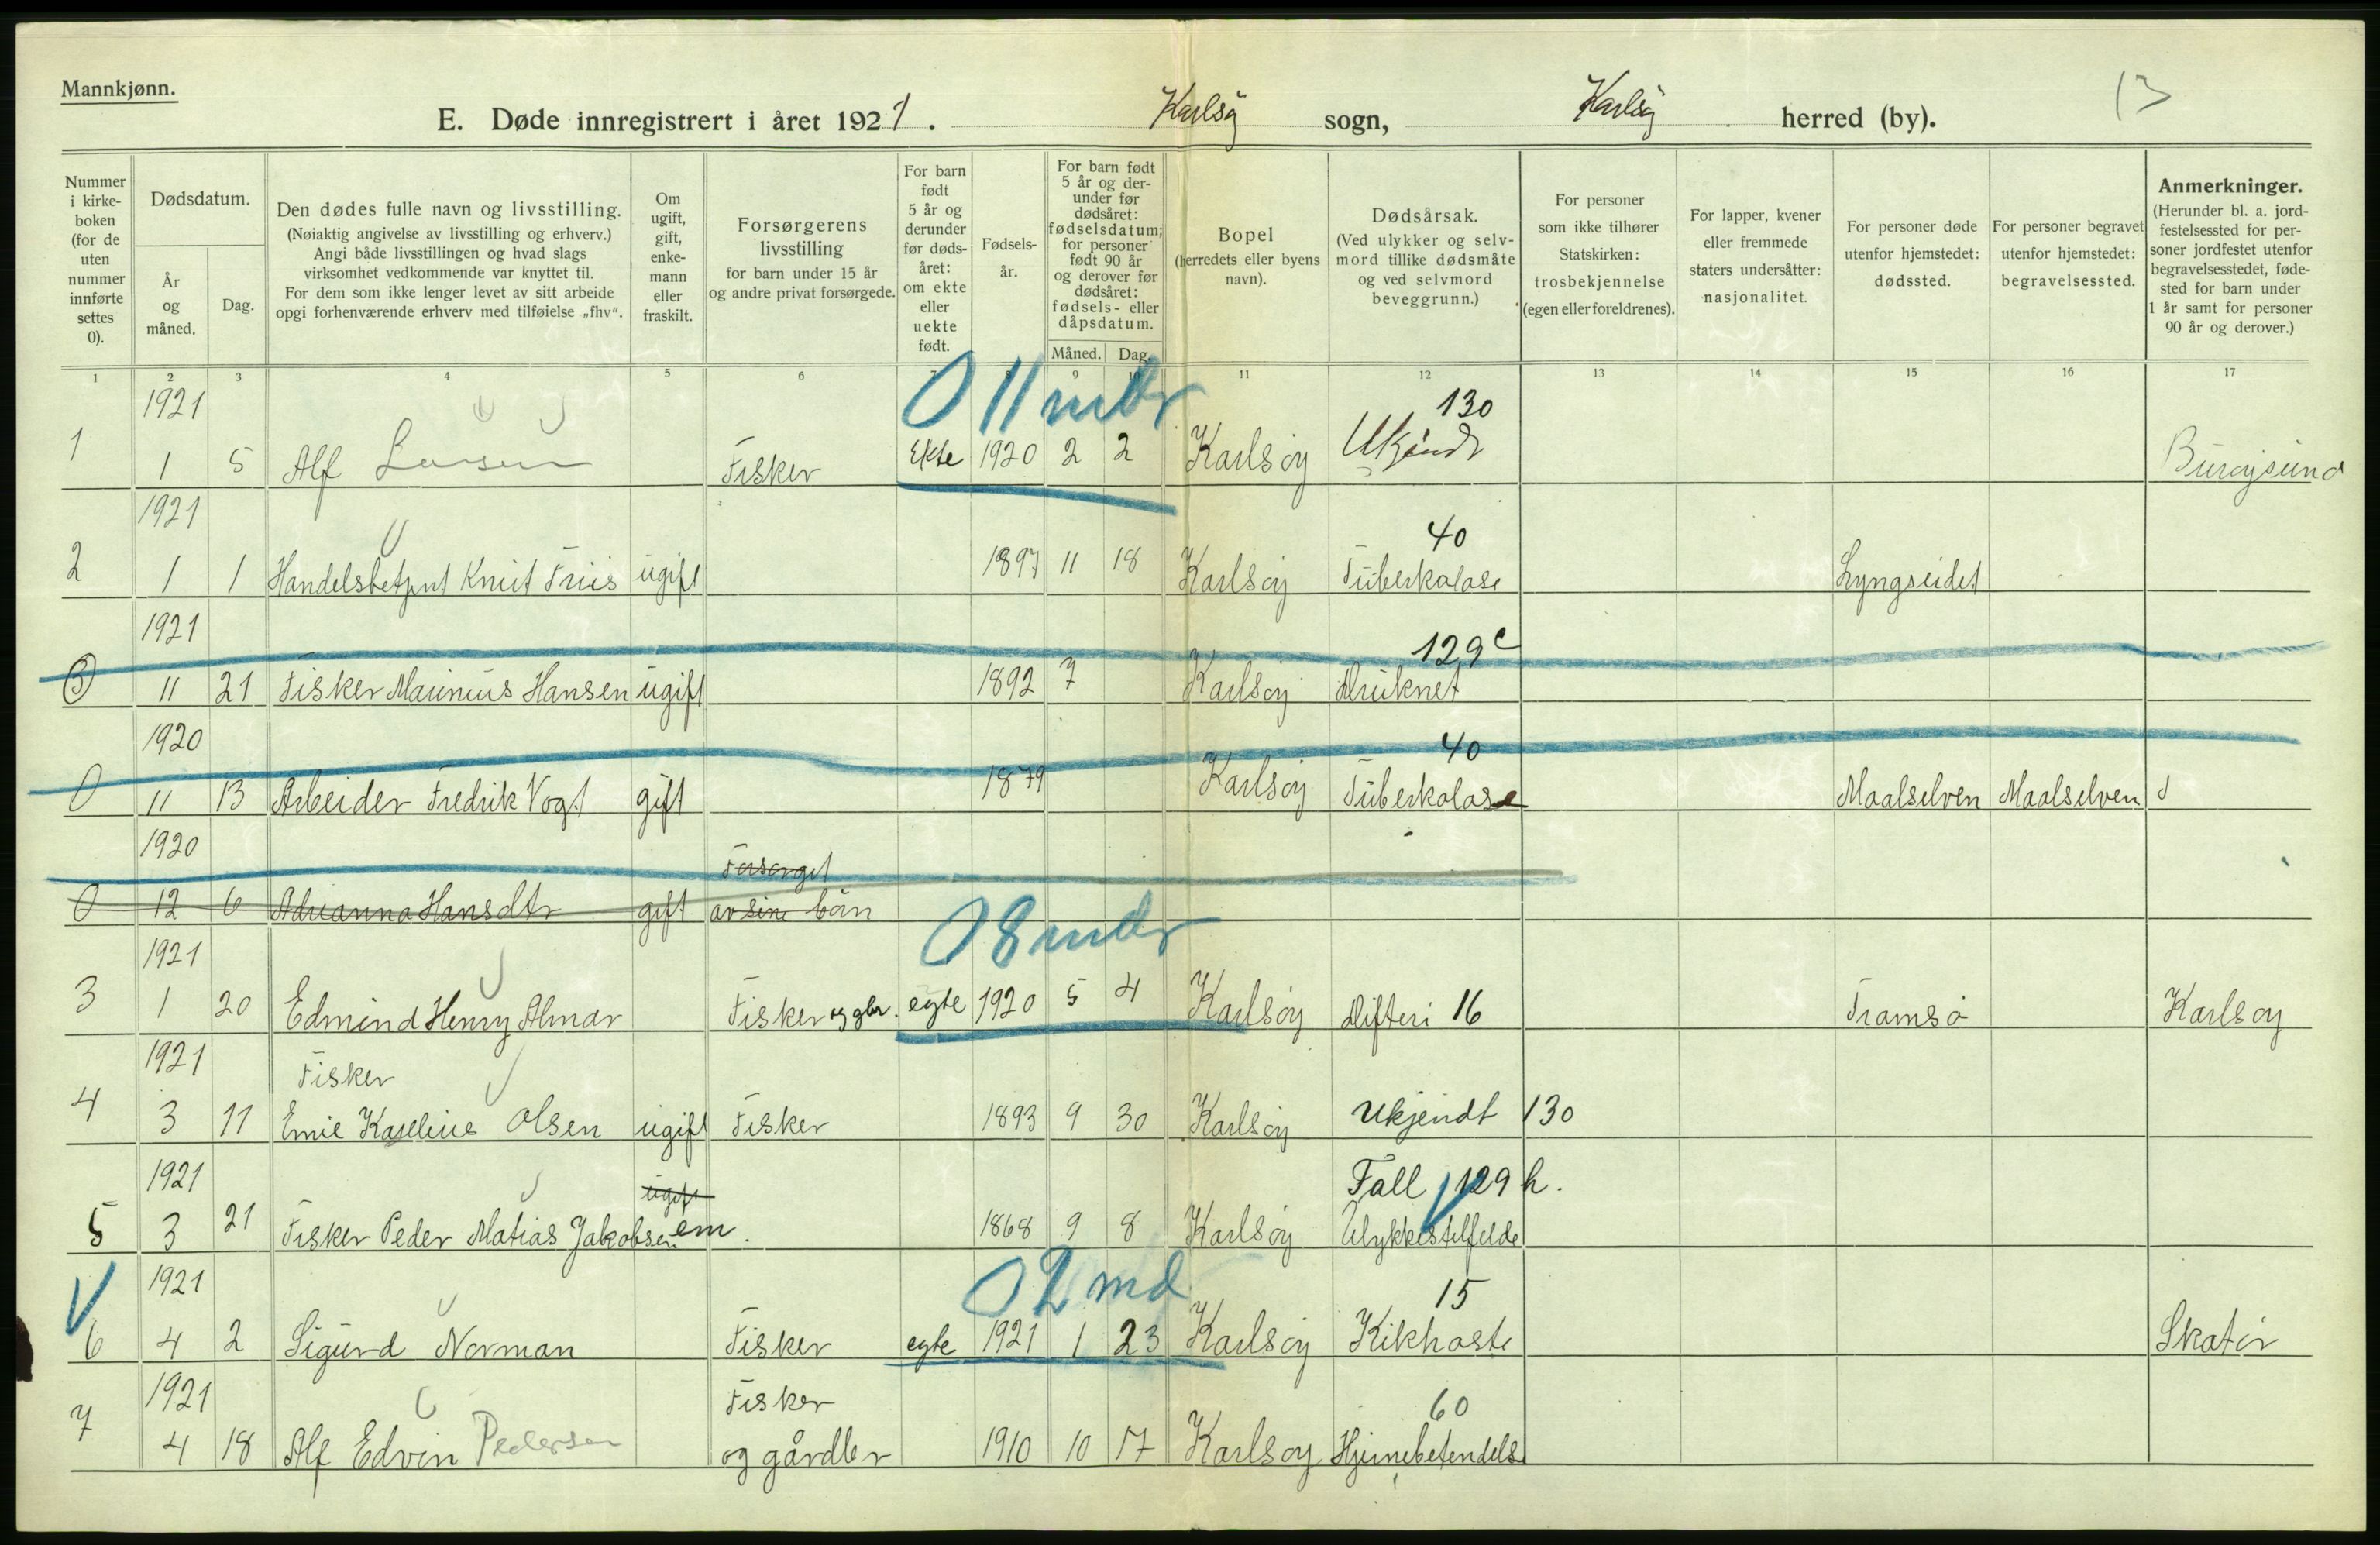 Mannkjønn.
13
E. Døde innregistrert i året 1921. Karlsöy sogn, Karlsöy herred (by).
Nummer i kirke-boken (for de uten nummer innførte settes 0).
Dødsdatum.
År og måned.
Dag.
Den dødes fulle navn og livsstilling.
(Nøiaktig angivelse av livsstilling og erhverv.)
Angi både livsstillingen og hvad slags
virksomhet vedkommende var knyttet til.
For dem som ikke lenger levet av sitt arbeide
opgi forhenværende erhverv med tilføielse „fhv“.
Om ugift, gift, enke-mann eller fraskilt.
Forsørgerens livsstilling
for barn under 15 år
og andre privat forsørgede.
For barn født 5 år og derunder før døds-året: om ekte eller uekte født.
Fødsels-år.
For barn født 5 år og der-under før dødsåret: fødselsdatum; for personer født 90 år og derover før dødsåret: fødsels- eller dåpsdatum.
Måned. Dag.
Bopel
(herredets eller byens navn).
Dødsårsak.
(Ved ulykker og selv-mord tillike dødsmåte og ved selvmord beveggrunn.)
For personer som ikke tilhører Statskirken: trosbekjennelse (egen eller foreldrenes).
For lapper, kvener eller fremmede staters undersåtter: nasjonalitet.
For personer døde utenfor hjemstedet: dødssted.
For personer begravet utenfor hjemstedet: begravelsessted.
Anmerkninger.
(Herunder bl. a. jord-festelsessted for per-soner jordfestet utenfor begravelsesstedet, føde-sted for barn under 1 år samt for personer 90 år og derover.)
1 2 3 4 5 6 7 8 9 10 11 12 13 14 15 16 17
1921 0 11 mdr 130
1 1 5 Alf Larsen Fisker Ekte 1920 2 2 Karlsöy Ukjendt Burøysund
1921 40
2 1 1 Handelsbetjent Knut Friis ugift 1897 11 18 Karlsöy Tuberkolose Lyngseidet
1921 129c
3 11 21 Fisker Marinius Hansen ugift 1892 7 Karlsöy Druknet
1920 40
0 11 13 Arbeider Fredrik Vogt gift 1879 Karlsöy Tuberkolose Maalselven Maalselven
1920 Forsørget
0 12 6 Adrianna Hansdtr gift av sine børn
1921 0 8 mdr
3 1 20 Edmind Henry Almar Fisker og gbr. egte 1920 5 4 Karlsöy Difteri 16 Tromsø Karlsøy
1921 Fisker
4 3 11 Emil Karelius Olsen ugift Fisker 1893 9 30 Karlsöy Ukjendt 130
1921 ugift Fall 129 h.
5 3 21 Fisker Peder Matias Jakobsen em. 1868 9 8 Karlsöy Ulykkestilfelde
1921 0 2 md 15
6 4 2 Sigurd Norman Fisker egte 1921 1 23 Karlsöy Kikhoste Skatør
1921 Fisker 60
7 4 18 Alf Edvin Pedersen og gårdbr 1910 10 17 Karlsøy Hjernebetendelse